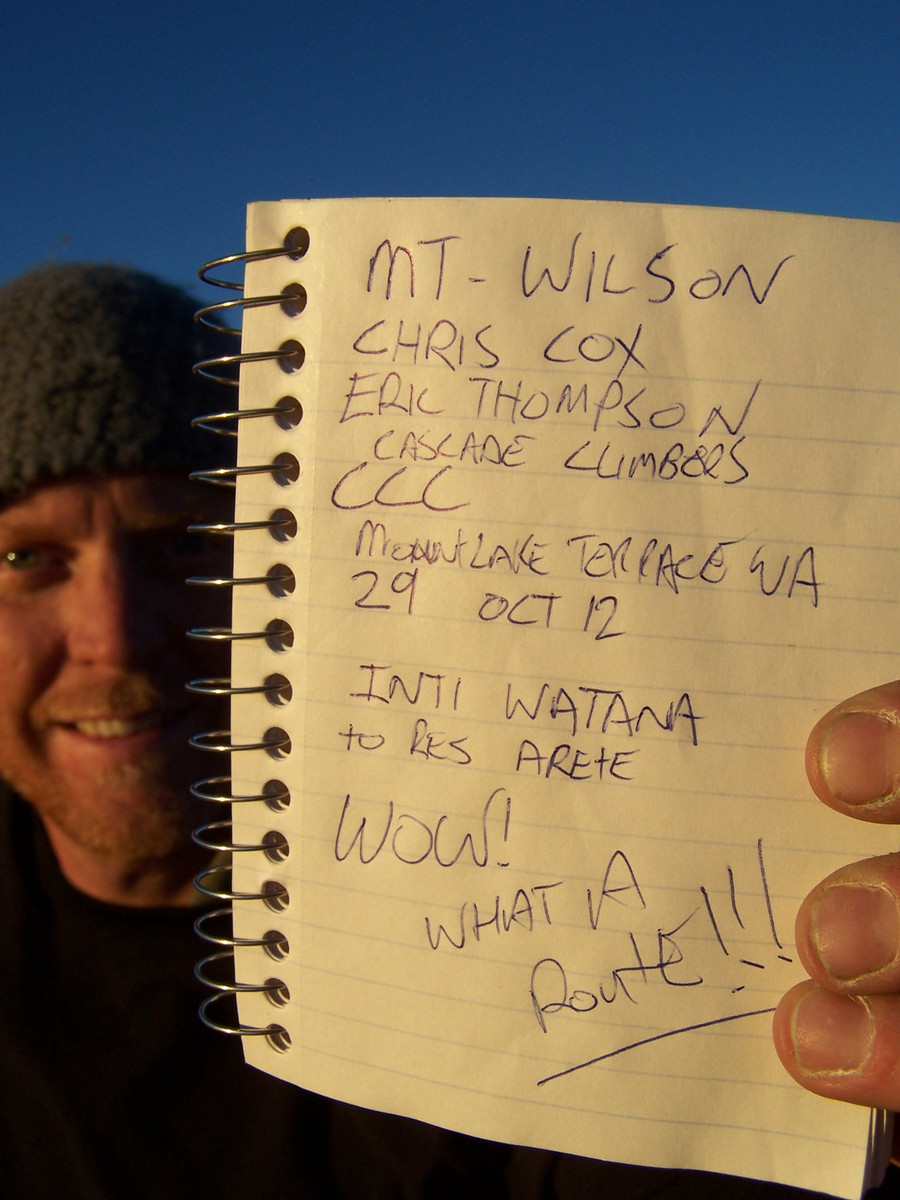 MT - WILSON
CHRIS COX
ERIC THOMPSON
CASCADE CLIMBERS
CCC
MOUNTLAKE TERRACE WA
29 OCT 12
INTI WATANA
to RES ARETE
WOW!
WHAT A
ROUTE!!!